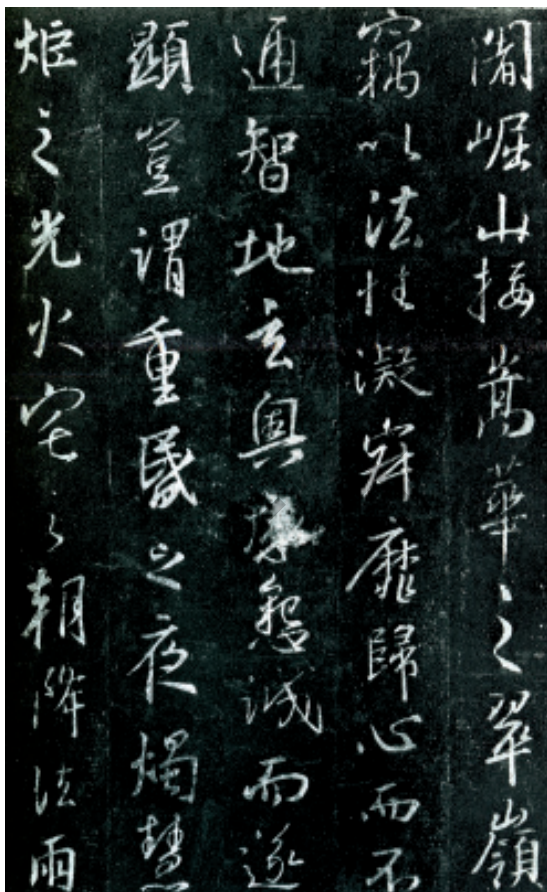 闍崛山接嵩華之翠嶺
竊以法性凝寂靡歸心而不
通智地玄奧感懇誠而遂
顯豈謂重昬之夜燭慧
炬之光火宅之朝降法雨